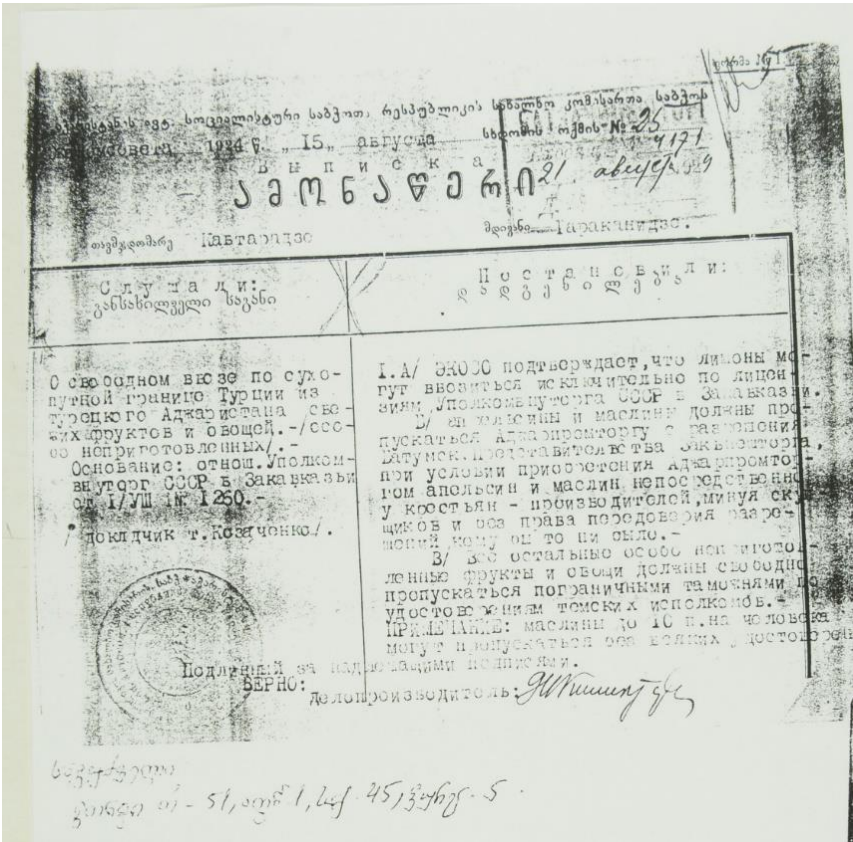 ფორმა №1
სოციალისტური საბჭოთ. რესპუბლიკის სახალხო კომისართა საბჭოს
1924 г. „15„ августа სხდომის ოქმის № 25
4171
Выписка
ამონაწერი
21 август
თავმჯდომარე Кавтарадзе
მდივანი Тараканидзе.
Слушали:
განსახილველი საგანი
Постановили:
დადგენილება
О свободном ввозе по сухо-
путной границе Турции из
турецкого Аджаристана све-
жих фруктов и овощей.-/осо-
бо неприготовленных/.-
Основание: отнош.Уполком-
внуторг СССР в Закавказьи
от I/УШ № 1260.-
/докладчик т.Козаченко/.
I.А/ ЭКОСО подтверждает,что лимоны мо-
гут ввозиться исключительно по лицен-
зиям Уполкомвнуторга СССР в Закавказьи.
Б/ апельсины и маслины должны про-
пускаться Аджарпромторгу с разрешения
Батумск.Представительства
при условии приобретения Аджарпромтор-
гом апельсин и маслин непосредственно
у крестьян - производителей,минуя скуп
щиков и без права передоверия разре-
шений кому бы то ни было.-
В/ Все остальные особо непригото-
ленные фрукты и овощи должны свободно
пропускаться пограничными таможнями по
удостоверениям темских исполкомов.-
ПРИМЕЧАНИЕ: маслины до 10 п.на человека
могут пропускаться без всяких удостовере
Подлинный за надлежащими подписями.
ВЕРНО:
Делопроизводитель:
ფონდი - 51, 1, საქ 45, ფურც. 5.